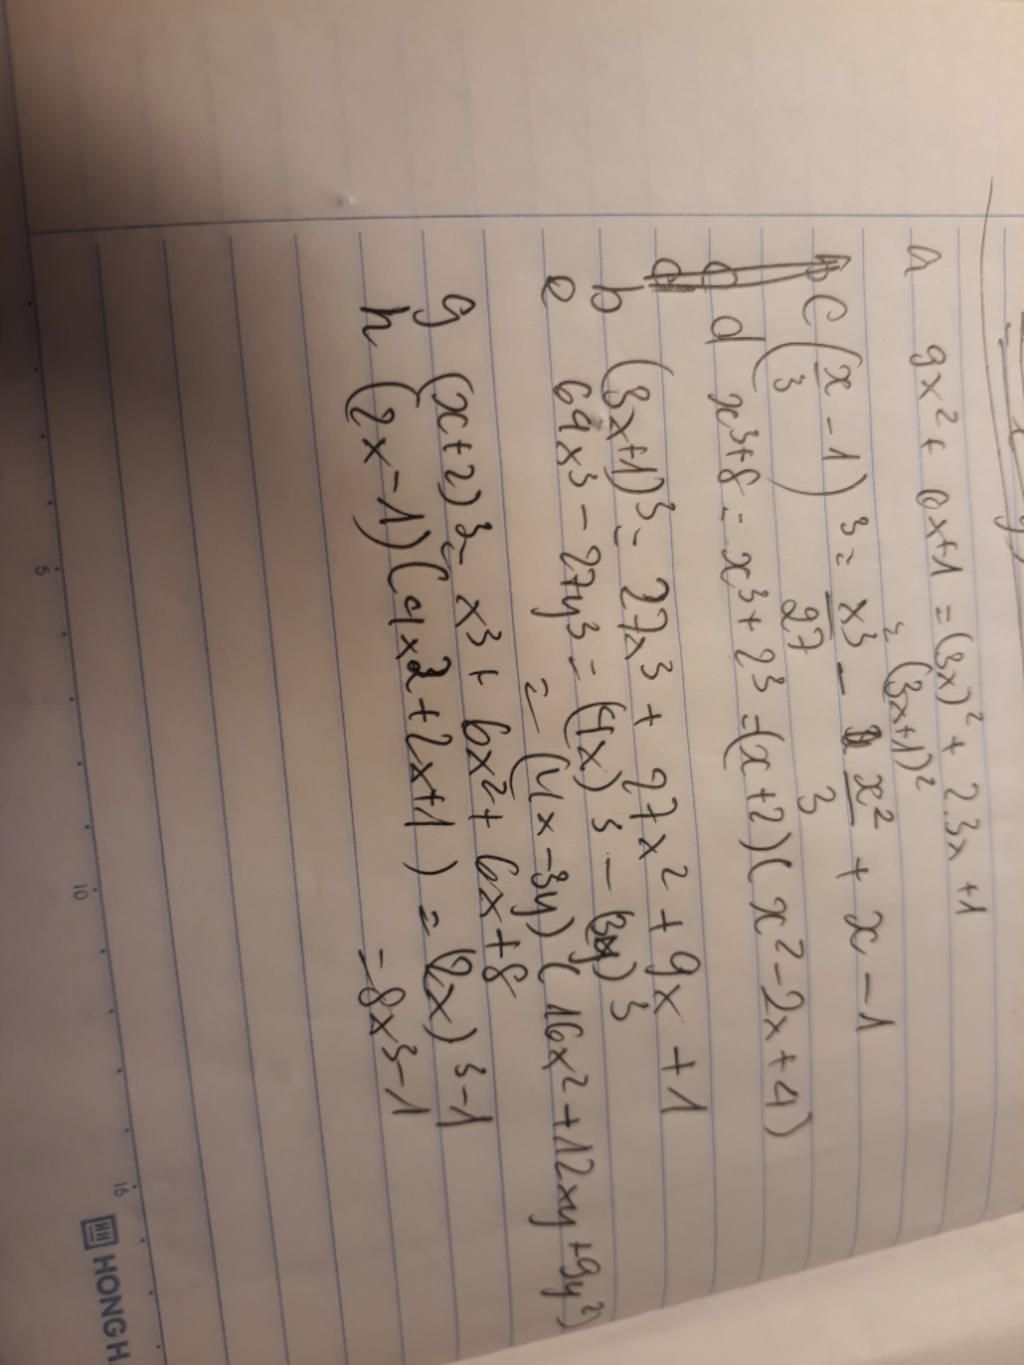 a 9x² + 6x+1 = (3x)² + 2.3x +1
= (3x+1)²
C (x/3 - 1)³ = x³/27 - x²/3 + x - 1
d x³+8 = x³+2³ =(x+2)(x²-2x+4)
b (3x+1)³= 27x³ + 27x² + 9x + 1
e 64x³ - 27y³ = (4x)³ - (3y)³
= (4x-3y)(16x²+12xy+9y²)
g (x+2)³= x³ + 6x² + 6x+8
h (2x-1)(4x²+2x+1) = (2x)³-1
= 8x³-1
5 10 15 HONG H